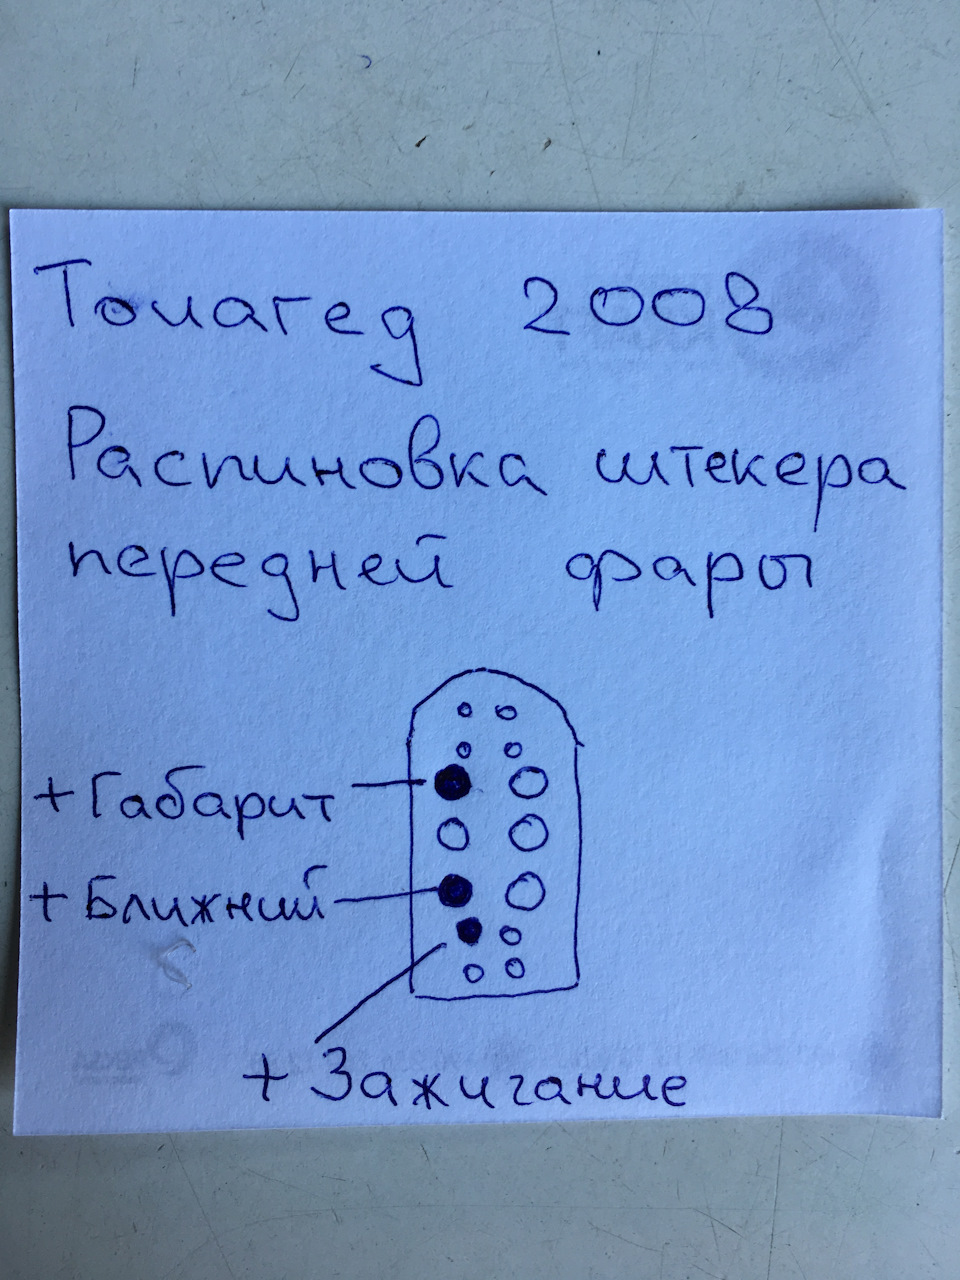 Тоиагед 2008
Распиновка штекера
передней фары
+ Габарит
+ Ближний
+ Зажигание